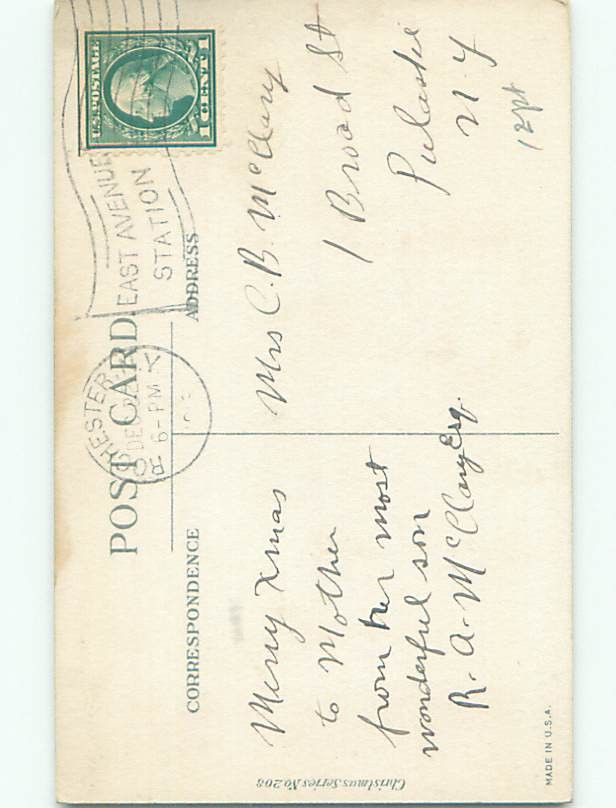 POST CARD
CORRESPONDENCE
ADDRESS
U.S. POSTAGE
1 CENT 1
EAST AVENUE
STATION
DEC
6-PM
Merry Xmas
to Mother
from her most
wonderful son
R. A. McClary Esq.
Mrs C. B. McClary
1 Broad St
Pulaski
N Y
12pt
Christmas Series No. 208
MADE IN U.S.A.